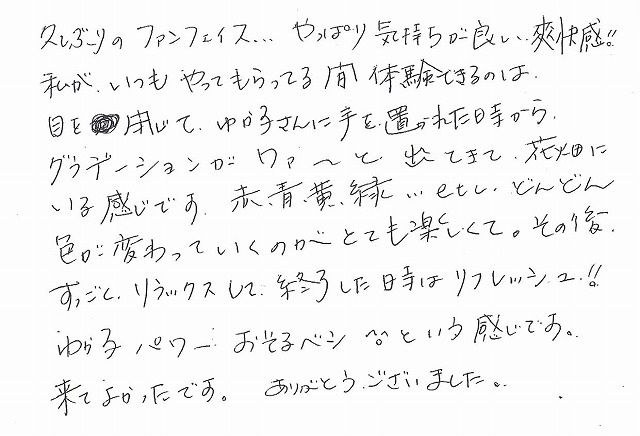 久しぶりの ファンフェイス… やっぱり 気持ちが良い、爽快感!!
私が、いつも やってもらってる 間 体験できるのは、
目を 閉じて、ゆか子さんに手を置かれた時から、
グラデーションが ワァ〜と 出てきて、花畑に
いる感じです。赤、青、黄、緑…etc. どんどん
色が変わっていくのがとても楽しくて。その後、
すっごく、リラックスして、終了した時はリフレッシュ!!
ゆか子 パワー おそるべシ ^^ という感じです。
来てよかったです。 ありがとうございました。